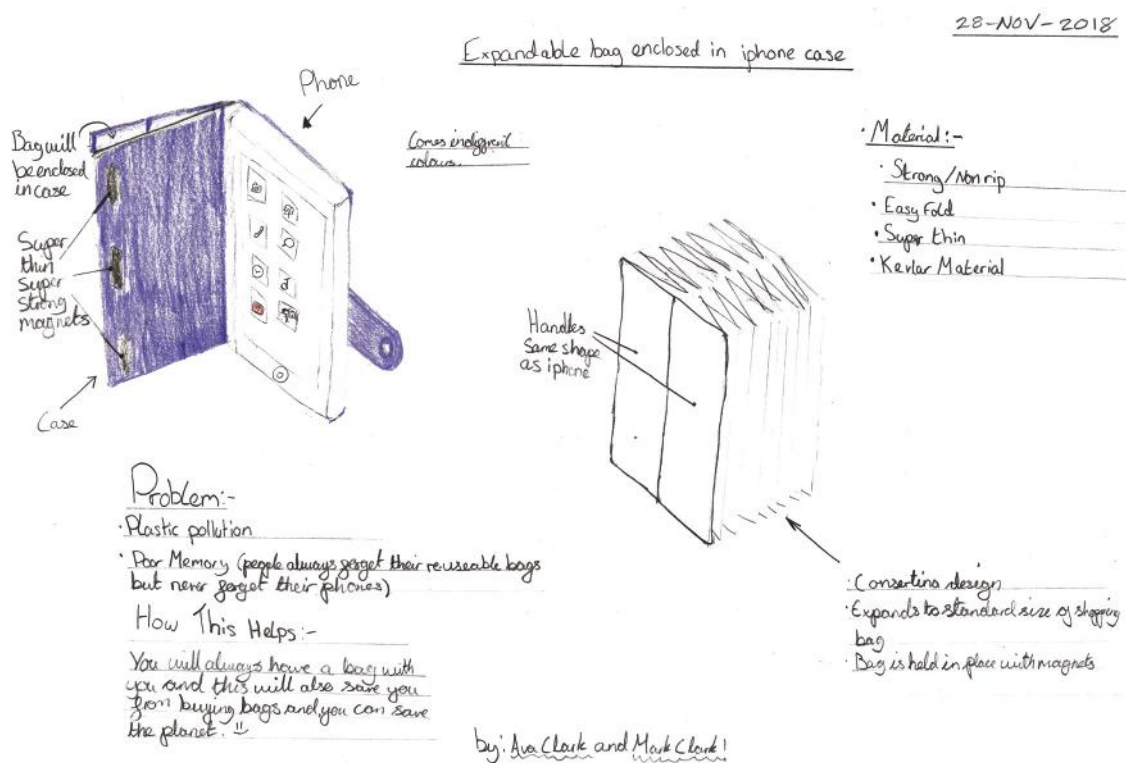 28-NOV-2018
Expandable bag enclosed in iphone case
Phone
Bag will
be enclosed
in case
Super
thin
super
strong
magnets
Case
Comes in different
colours.
· Material:-
· Strong/Non rip
· Easy Fold
· Super thin
· Kevlar Material
Handles
Same shape
as iphone
Problem:-
· Plastic pollution
· Poor Memory (people always forget their reuseable bags
but never forget their phones)
How This Helps:-
You will always have a bag with
you and this will also save you
from buying bags and you can save
the planet.
· Consertina design
· Expands to standard size of shopping
bag
· Bag is held in place with magnets
by: Ava Clark and Mark Clark!